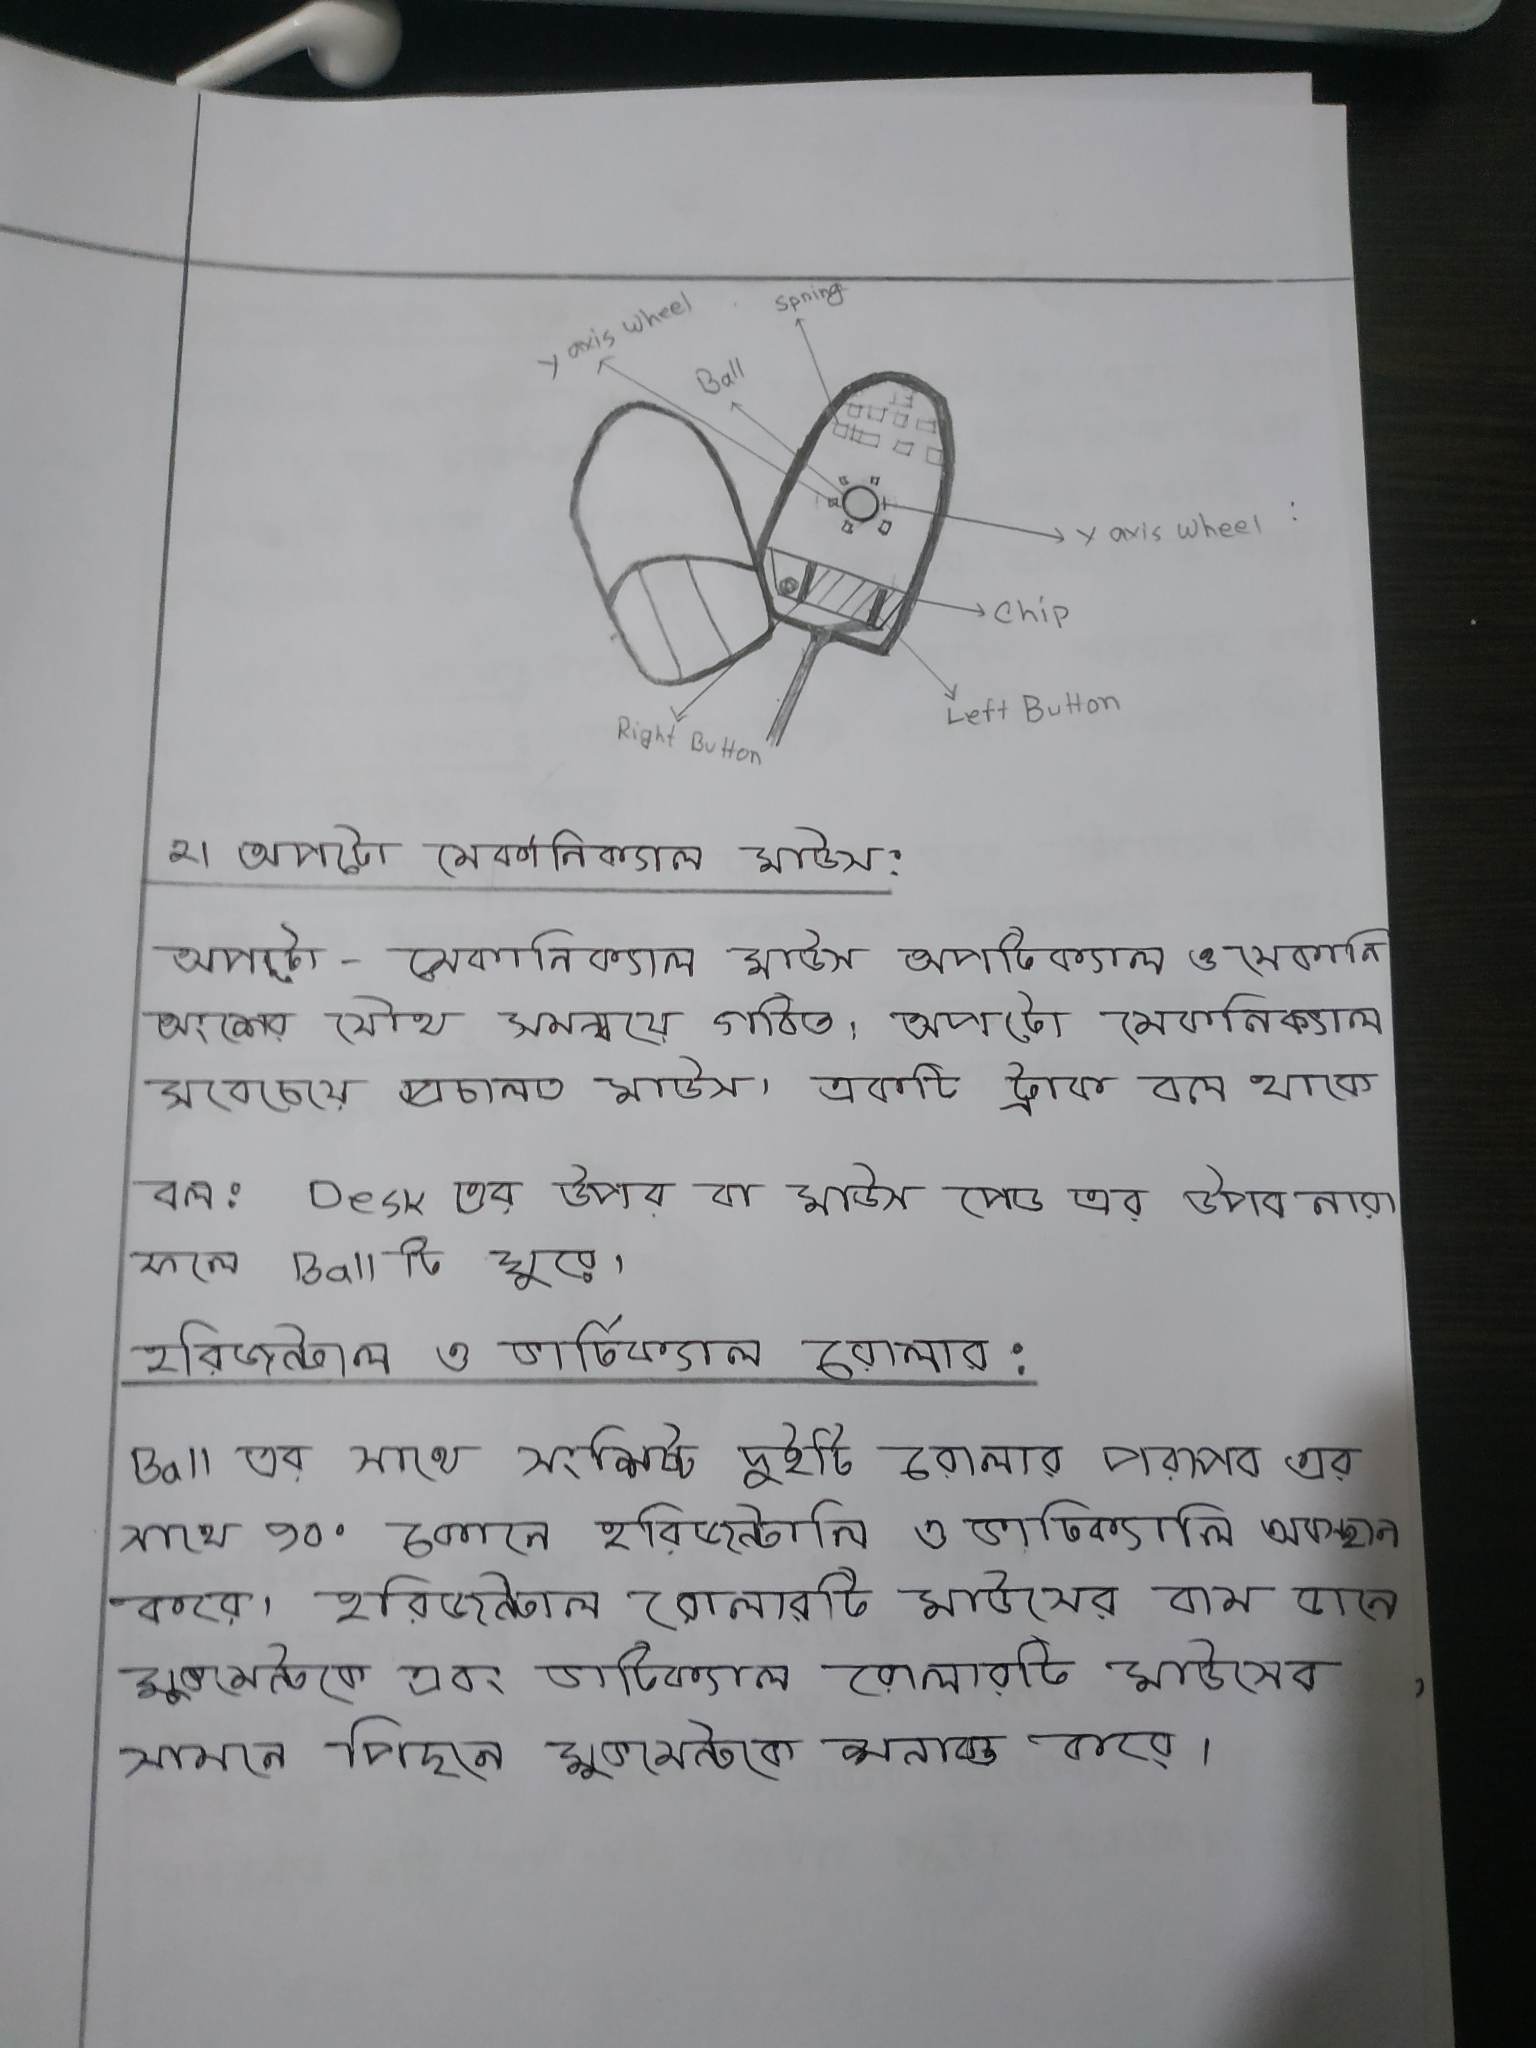 Spring
Y axis wheel
Ball
Y axis wheel
Chip
Left Button
Right Button
২। অপটো মেকানিক্যাল মাউস:
অপটো - মেকানিক্যাল মাউস অপটিক্যাল ও মেকানি
অংশের যৌথ সমন্বয়ে গঠিত। অপটো মেকানিক্যাল
সবেচেয়ে প্রচলিত মাউস। একটি ট্রাক বল থাকে
বল: Desk এর উপর বা মাউস পেড এর উপর নারা
ফলে Ball টি ঘুরে।
হরিজন্টাল ও ভার্টিক্যাল রোলার:
Ball এর সাথে সংশ্লিষ্ট দুইটি রোলার পরাপর এর
সাথে ৯০° কোনে হরিজন্টালি ও ভাটিক্যালি অবস্থান
করে। হরিজন্টাল রোলারটি মাউসের বাম ডানে
মুভমেন্টকে এবং ভাটিক্যাল রোলারটি মাউসের
সামনে পিছনে মুভমেন্টকে সনাক্ত করে।